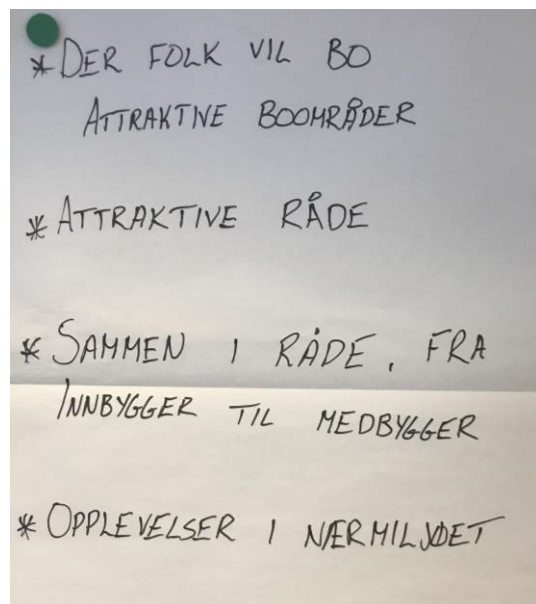 * DER FOLK VIL BO
ATTRAKTIVE BOOMRÅDER
* ATTRAKTIVE RÅDE
* SAMMEN I RÅDE, FRA
INNBYGGER TIL MEDBYGGER
* OPPLEVELSER I NÆRMILJØET